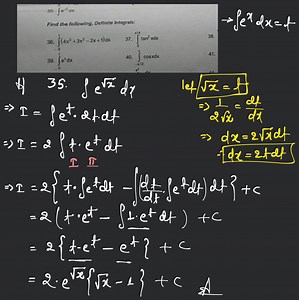 35. ∫e^√x dx
Find the following, Definite Integrals:
36. ∫(4x³+3x²-2x+1)dx
37. ∫tan²xdx
38.
39. ∫eˣdx
40. ∫cosxdx
41.
→∫eˣ dx = t
35. ∫e^√x dx
let √x = t
⇒ 1/2√x = dt/dx
⇒ dx = 2√x dt
dx = 2t dt
⇒ I = ∫e^t · 2t dt
⇒ I = 2 ∫t · e^t dt
I II
⇒ I = 2{t · ∫e^t dt - ∫(dt/dt · ∫e^t dt) dt} + c
= 2(t · e^t - ∫1 · e^t dt) + c
= 2{t · e^t - e^t} + c
= 2 · e^√x{√x - 1} + c